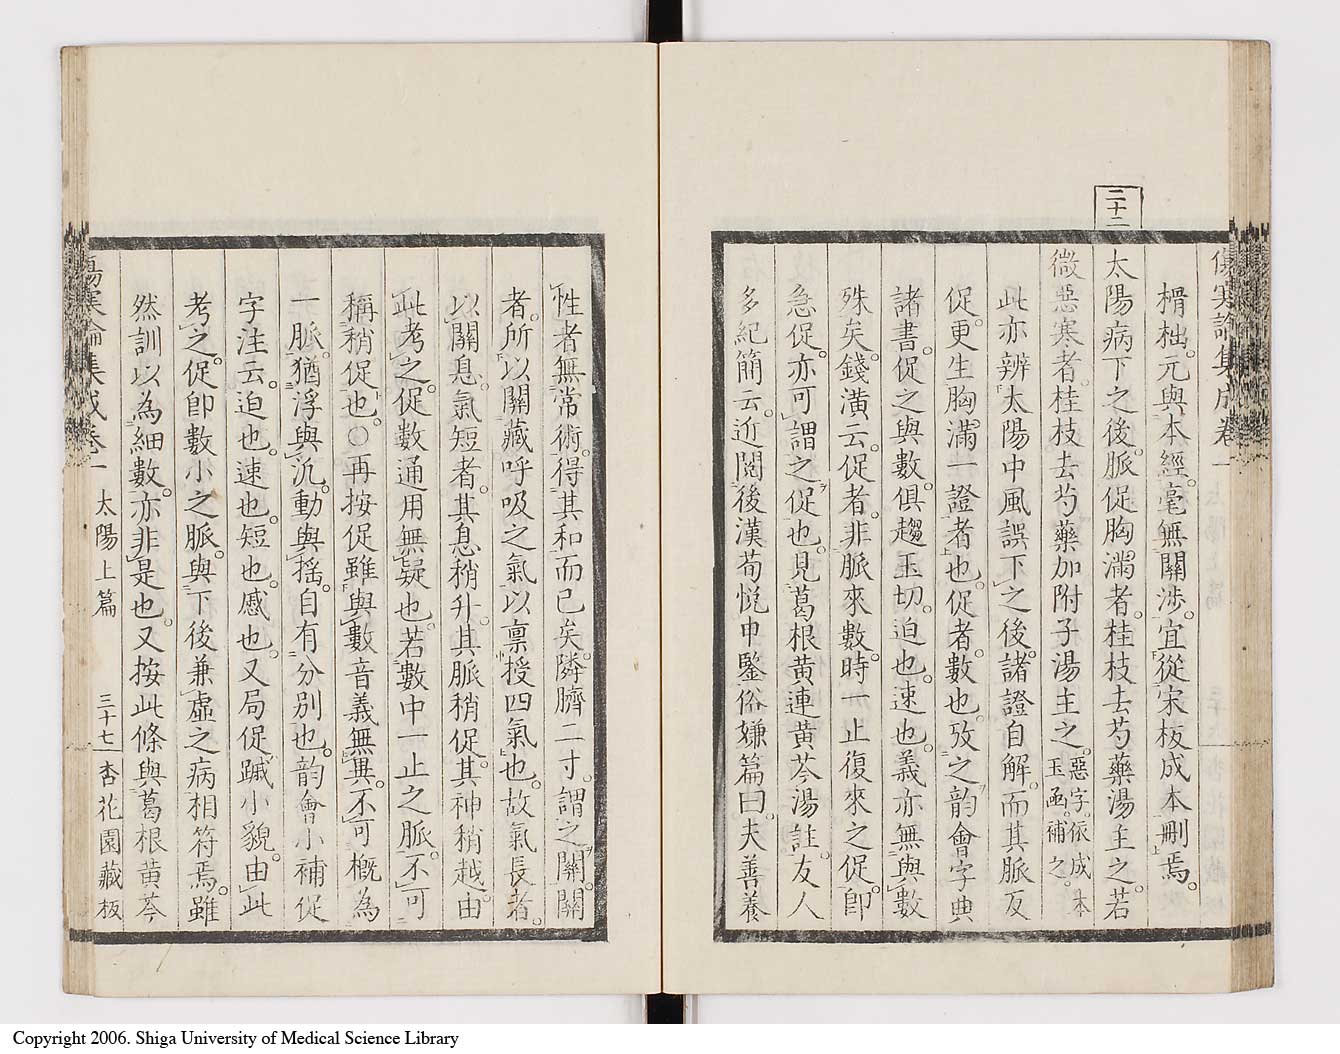 傷寒論集成卷一
榾柮。元與本經。毫無關涉。宜從宋板成本刪焉。
二十二
太陽病下之後。脈促胸滿者。桂枝去芍藥湯主之。若
微惡寒者。桂枝去芍藥加附子湯主之。惡字。依成本玉函。補之。
此亦辨太陽中風誤下之後。諸證自解。而其脈反
促。更生胸滿一證者也。促者。數也。攷之韵會字典
諸書。促之與數。俱趨玉切。迫也。速也。義亦無與數
殊矣。錢潢云。促者。非脈來數。時一止復來之促。卽
急促。亦可謂之促也。見葛根黃連黃芩湯註。友人
多紀簡云。近閱後漢荀悅申鑒俗嫌篇曰。夫善養
性者無常術。得其和而已矣。隣臍二寸。謂之關。關
者。所以關藏呼吸之氣以稟授四氣也。故氣長者。
以關息。氣短者。其息稍升。其脈稍促。其神稍越。由
此考之。促數通用無疑也。若數中一止之脈。不可
稱稍促也。○再按促雖與數音義無異。不可概為
一脈。猶浮與沉。動與搖。自有分別也。韵會小補促
字注云。迫也。速也。短也。慼也。又局促蹴小貌。由此
考之。促卽數小之脈。與下後兼虛之病相符焉。雖
然訓以為細數。亦非是也。又按此條與葛根黃芩
傷寒論集成卷一 太陽上篇 三十七 杏花園藏板
Copyright 2006. Shiga University of Medical Science Library